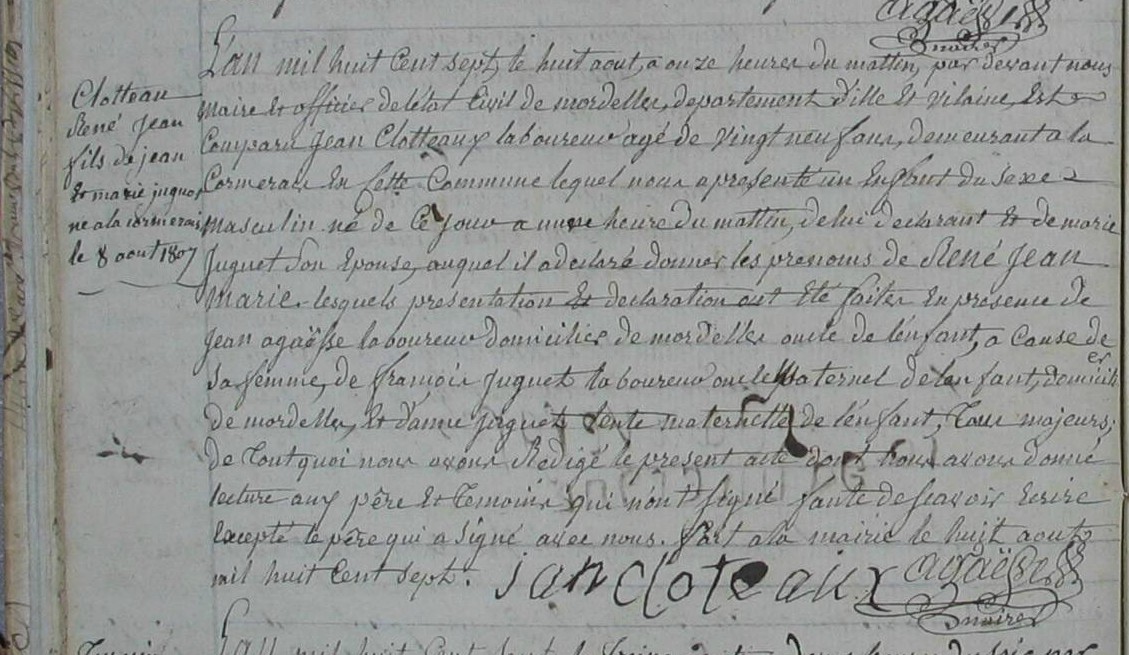 agaësse
maire
L'an mil huit Cent sept, le huit aout, a onze heures du mattin, par devant nous
maire et officier de l'état Civil de mordelles, departement d'ille et vilaine, Est
Comparu Jean Clotteaux laboureur agé de vingt neuf ans, demeurant a la
Cormerais En Cette Commune lequel nous a presenté un Enfant du sexe
masculin né de Ce Jour a une heure du mattin, de lui declarant et de marie
Juguet Son Epouse, auquel il a declaré donner les prenoms de René Jean
marie. lesquels presentation et declaration ont été faites En presence de
Jean agaësse laboureur domicilié de mordelles oncle de l'enfant, a Cause de
Sa femme, de françois Juguet laboureur oncle maternel de l'enfant, domicilié
de mordelles, Et d'anne Juguet tente maternelle de l'enfant, Tous majeurs;
de Tout quoi nous avons Redigé le present acte dont nous avons donné
lecture aux père Et Temoins qui n'ont signé faute de scavoir Ecrire
Excepté le père qui a Signé avec nous. fait a la mairie le huit aout
mil huit Cent sept.
jan cloteaux
agaësse
maire
Clotteau
René Jean
fils de jean
Et marie juguet
né a la cormerais
le 8 aout 1807
L'an mil huit Cent sept le